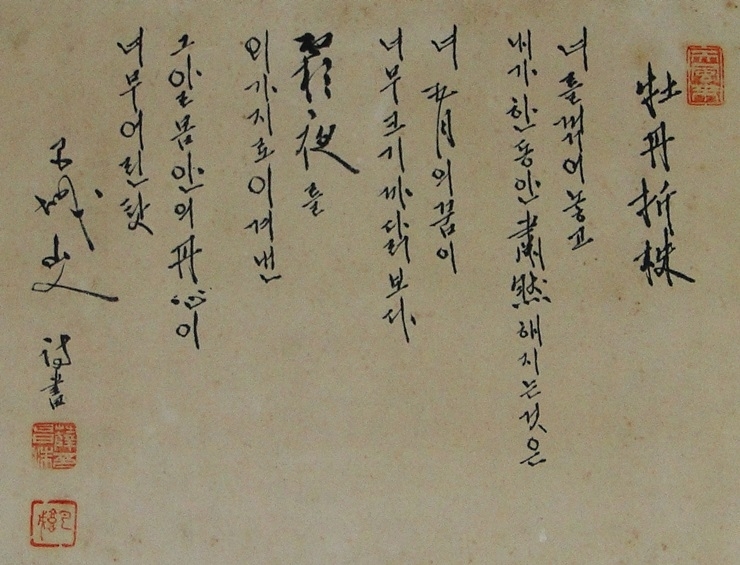 牡丹折枝
너를 꺾어놓고
내가 한동안 肅然해지는것은
너 五月의 꿈이
너무 크기 까닭보다
夜를
외가지로 이겨낸
그 알몸 안의 丹心이
너무 어린 탓
山人
詩書